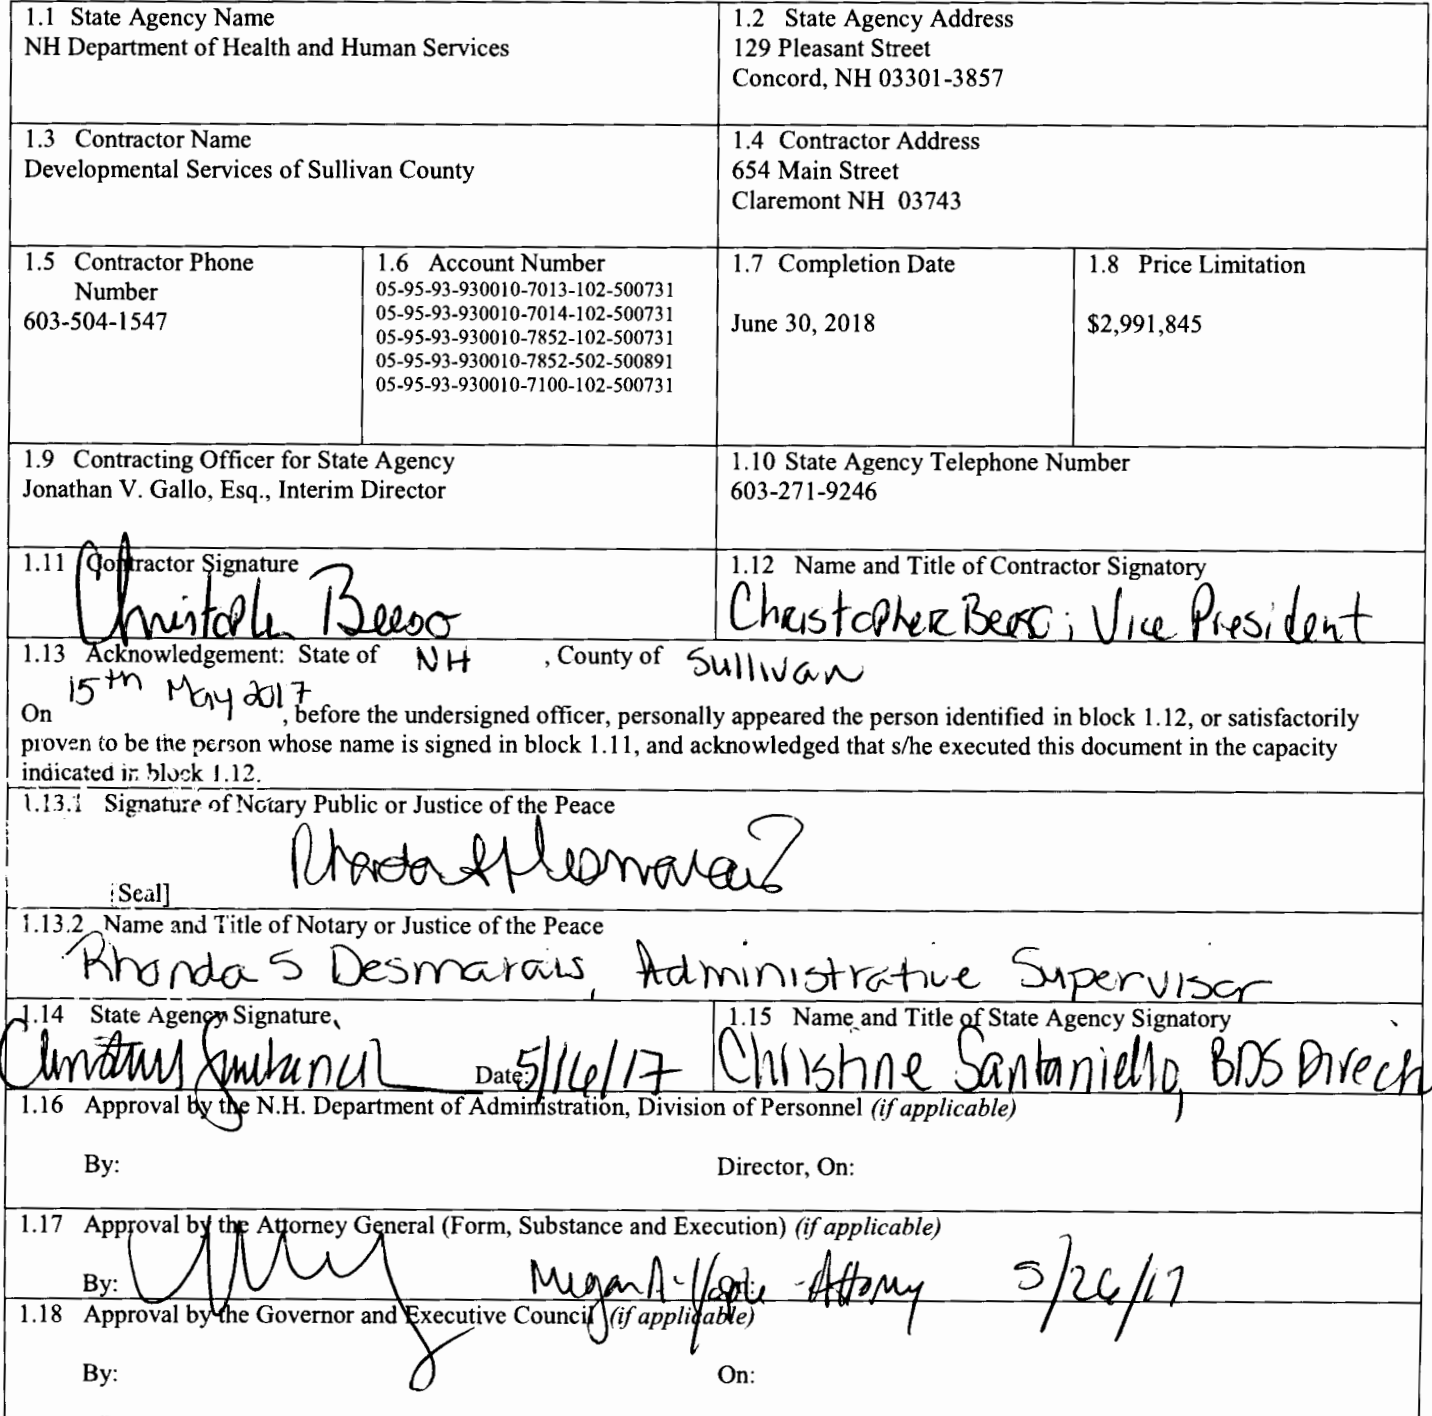 1.1 State Agency Name
NH Department of Health and Human Services
1.2 State Agency Address
129 Pleasant Street
Concord, NH 03301-3857
1.3 Contractor Name
Developmental Services of Sullivan County
1.4 Contractor Address
654 Main Street
Claremont NH 03743
1.5 Contractor Phone
Number
603-504-1547
1.6 Account Number
05-95-93-930010-7013-102-500731
05-95-93-930010-7014-102-500731
05-95-93-930010-7852-102-500731
05-95-93-930010-7852-502-500891
05-95-93-930010-7100-102-500731
1.7 Completion Date
June 30, 2018
1.8 Price Limitation
$2,991,845
1.9 Contracting Officer for State Agency
Jonathan V. Gallo, Esq., Interim Director
1.10 State Agency Telephone Number
603-271-9246
1.11 Contractor Signature
Christopher
1.12 Name and Title of Contractor Signatory
Christopher ; Vice President
1.13 Acknowledgement: State of NH , County of Sullivan
On 15th May 2017, before the undersigned officer, personally appeared the person identified in block 1.12, or satisfactorily
proven to be the person whose name is signed in block 1.11, and acknowledged that s/he executed this document in the capacity
indicated in block 1.12.
1.13.1 Signature of Notary Public or Justice of the Peace
Rhonda S Desmarais
[Seal]
1.13.2 Name and Title of Notary or Justice of the Peace
Rhonda S Desmarais, Administrative Supervisor
1.14 State Agency Signature
Date: 5/16/17
1.15 Name and Title of State Agency Signatory
Christine Santaniello, BDS Direct
1.16 Approval by the N.H. Department of Administration, Division of Personnel (if applicable)
By: Director, On:
1.17 Approval by the Attorney General (Form, Substance and Execution) (if applicable)
By: Megan A. - Attorney 5/26/17
1.18 Approval by the Governor and Executive Council (if applicable)
By: On: